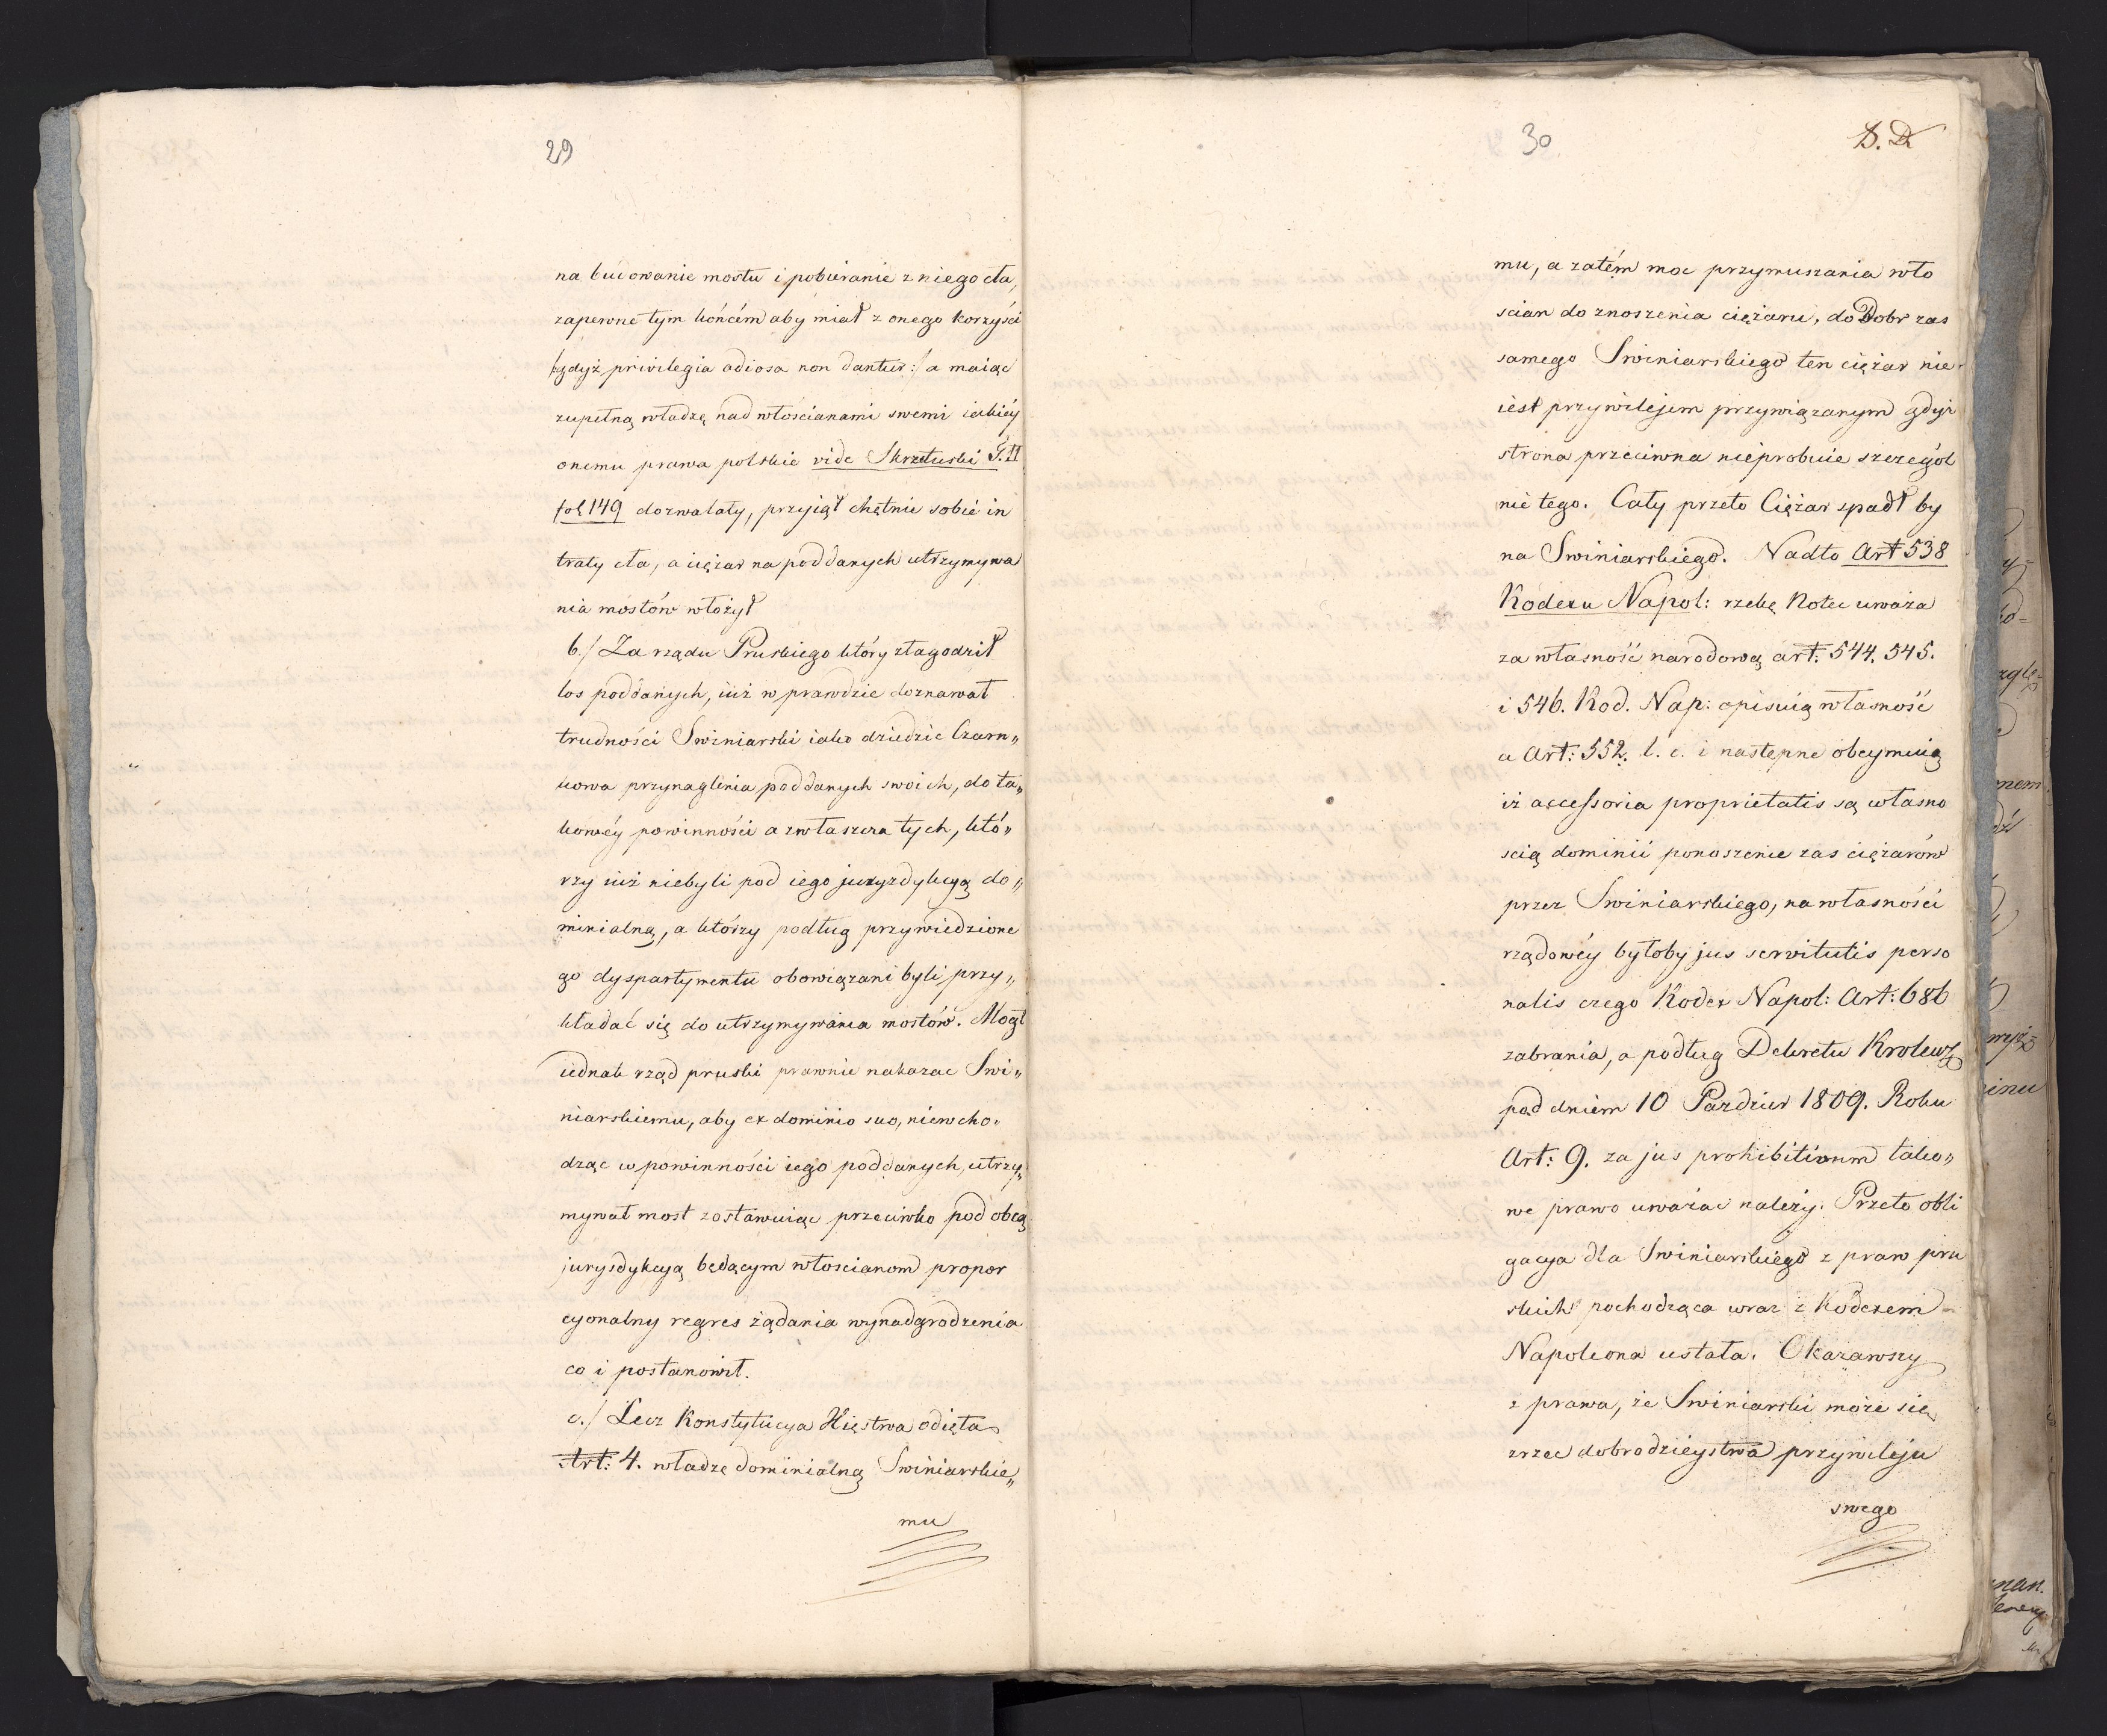 29
na budowanie mostu i pobieranie z niego cła,
zapewne tym końcem aby miał z onego korzyści
/:gdyż privilegia odiosa non dantur:/ a maiąc
zupełną władzę nad włościanami swemi iakiéy
onemu prawa polskie vide Skrzetuski T. II
fol 149 dozwalały, przyiął chętnie sobie in
traty cła, a ciężar na poddanych utrzymywa
nia mostów włożył
b./ Za rządu Pruskiego który złagodził
los poddanych, iuż w prawdzie doznawał
trudności Swiniarski iako dziedzic Czarn„
kowa przynaglenia poddanych swoich, do ta„
kowéy powinności a zwłaszcza tych, któ„
rzy iuż niebyli pod iego juryzdykcyą do„
minialną, a którzy podług przywiedzione
go dyspartymentu obowiązani byli, przy„
kładać się do utrzymywania mostów. Mógł
iednak rząd pruski prawnie nakazac Swi„
niarskiemu, aby ex dominio suo, niewcho„
dząc w powinności iego poddanych, utrzy„
mywał most zostawuiąc przeciwko pod obcą
jurysdykcyą będącym włoscianom propor
cyonalny regres żądania wynadgrodzenia
co i postanowił.
c./ Lecz Konstytucya Xięstwa odięta
Art: 4. władzę dominialną Swiniarskie„
mu
30
D. D
mu, a zatém moc przymuszania wło
scian do znoszenia ciężaru, do Dobr zas
samego Swiniarskiego ten ciężar nie„
iest przywilejem przywiązanym gdyż
strona przeciwna nieprobuie szczegól
nie tego. Cały przeto Ciężar spadł by
na Swiniarskiego. Nadto Art 538
Kodexu Napol: rzekę Notec uważa
za własność narodową art: 544. 545.
i 546. Kod. Nap: opisuią własność
a Art: 552. l. c. i następne obeymuią
iż accessoria proprietatis są własno
scią dominii ponoszenie zas ciężarów
przez Swiniarskiego, na własności
rządowéy byłoby jus servitutis perso
nalis czego Kodex Napol: Art: 686
zabrania, a podług Dekretu Krolewz
pod dniem 10 Pazdzier 1809. Roku
Art: 9. za jus prohibitivum tako„
we prawo uważac należy. Przeto obli
gacya dla Swiniarskiego z praw pru
skich pochodząca wraz z Kodexem
Napoleona ustała. Okazawszy
z prawa, że Swiniarski może się
zrzec dobrodzieystwa przywileju
swego